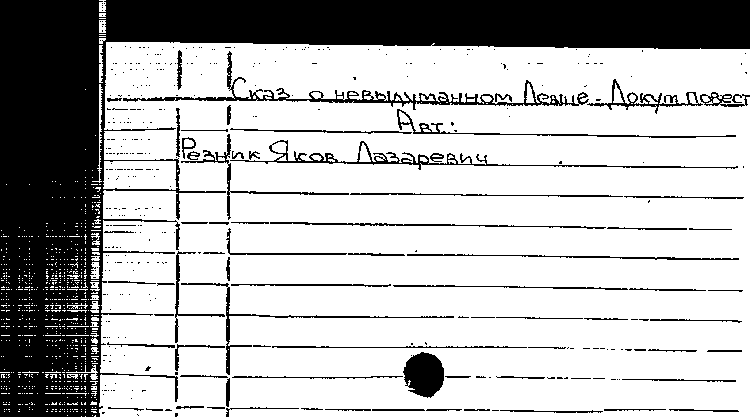 Сказ о невыдуманном Левше - Докум повест
Авт.:
Резник Яков Лазаревич